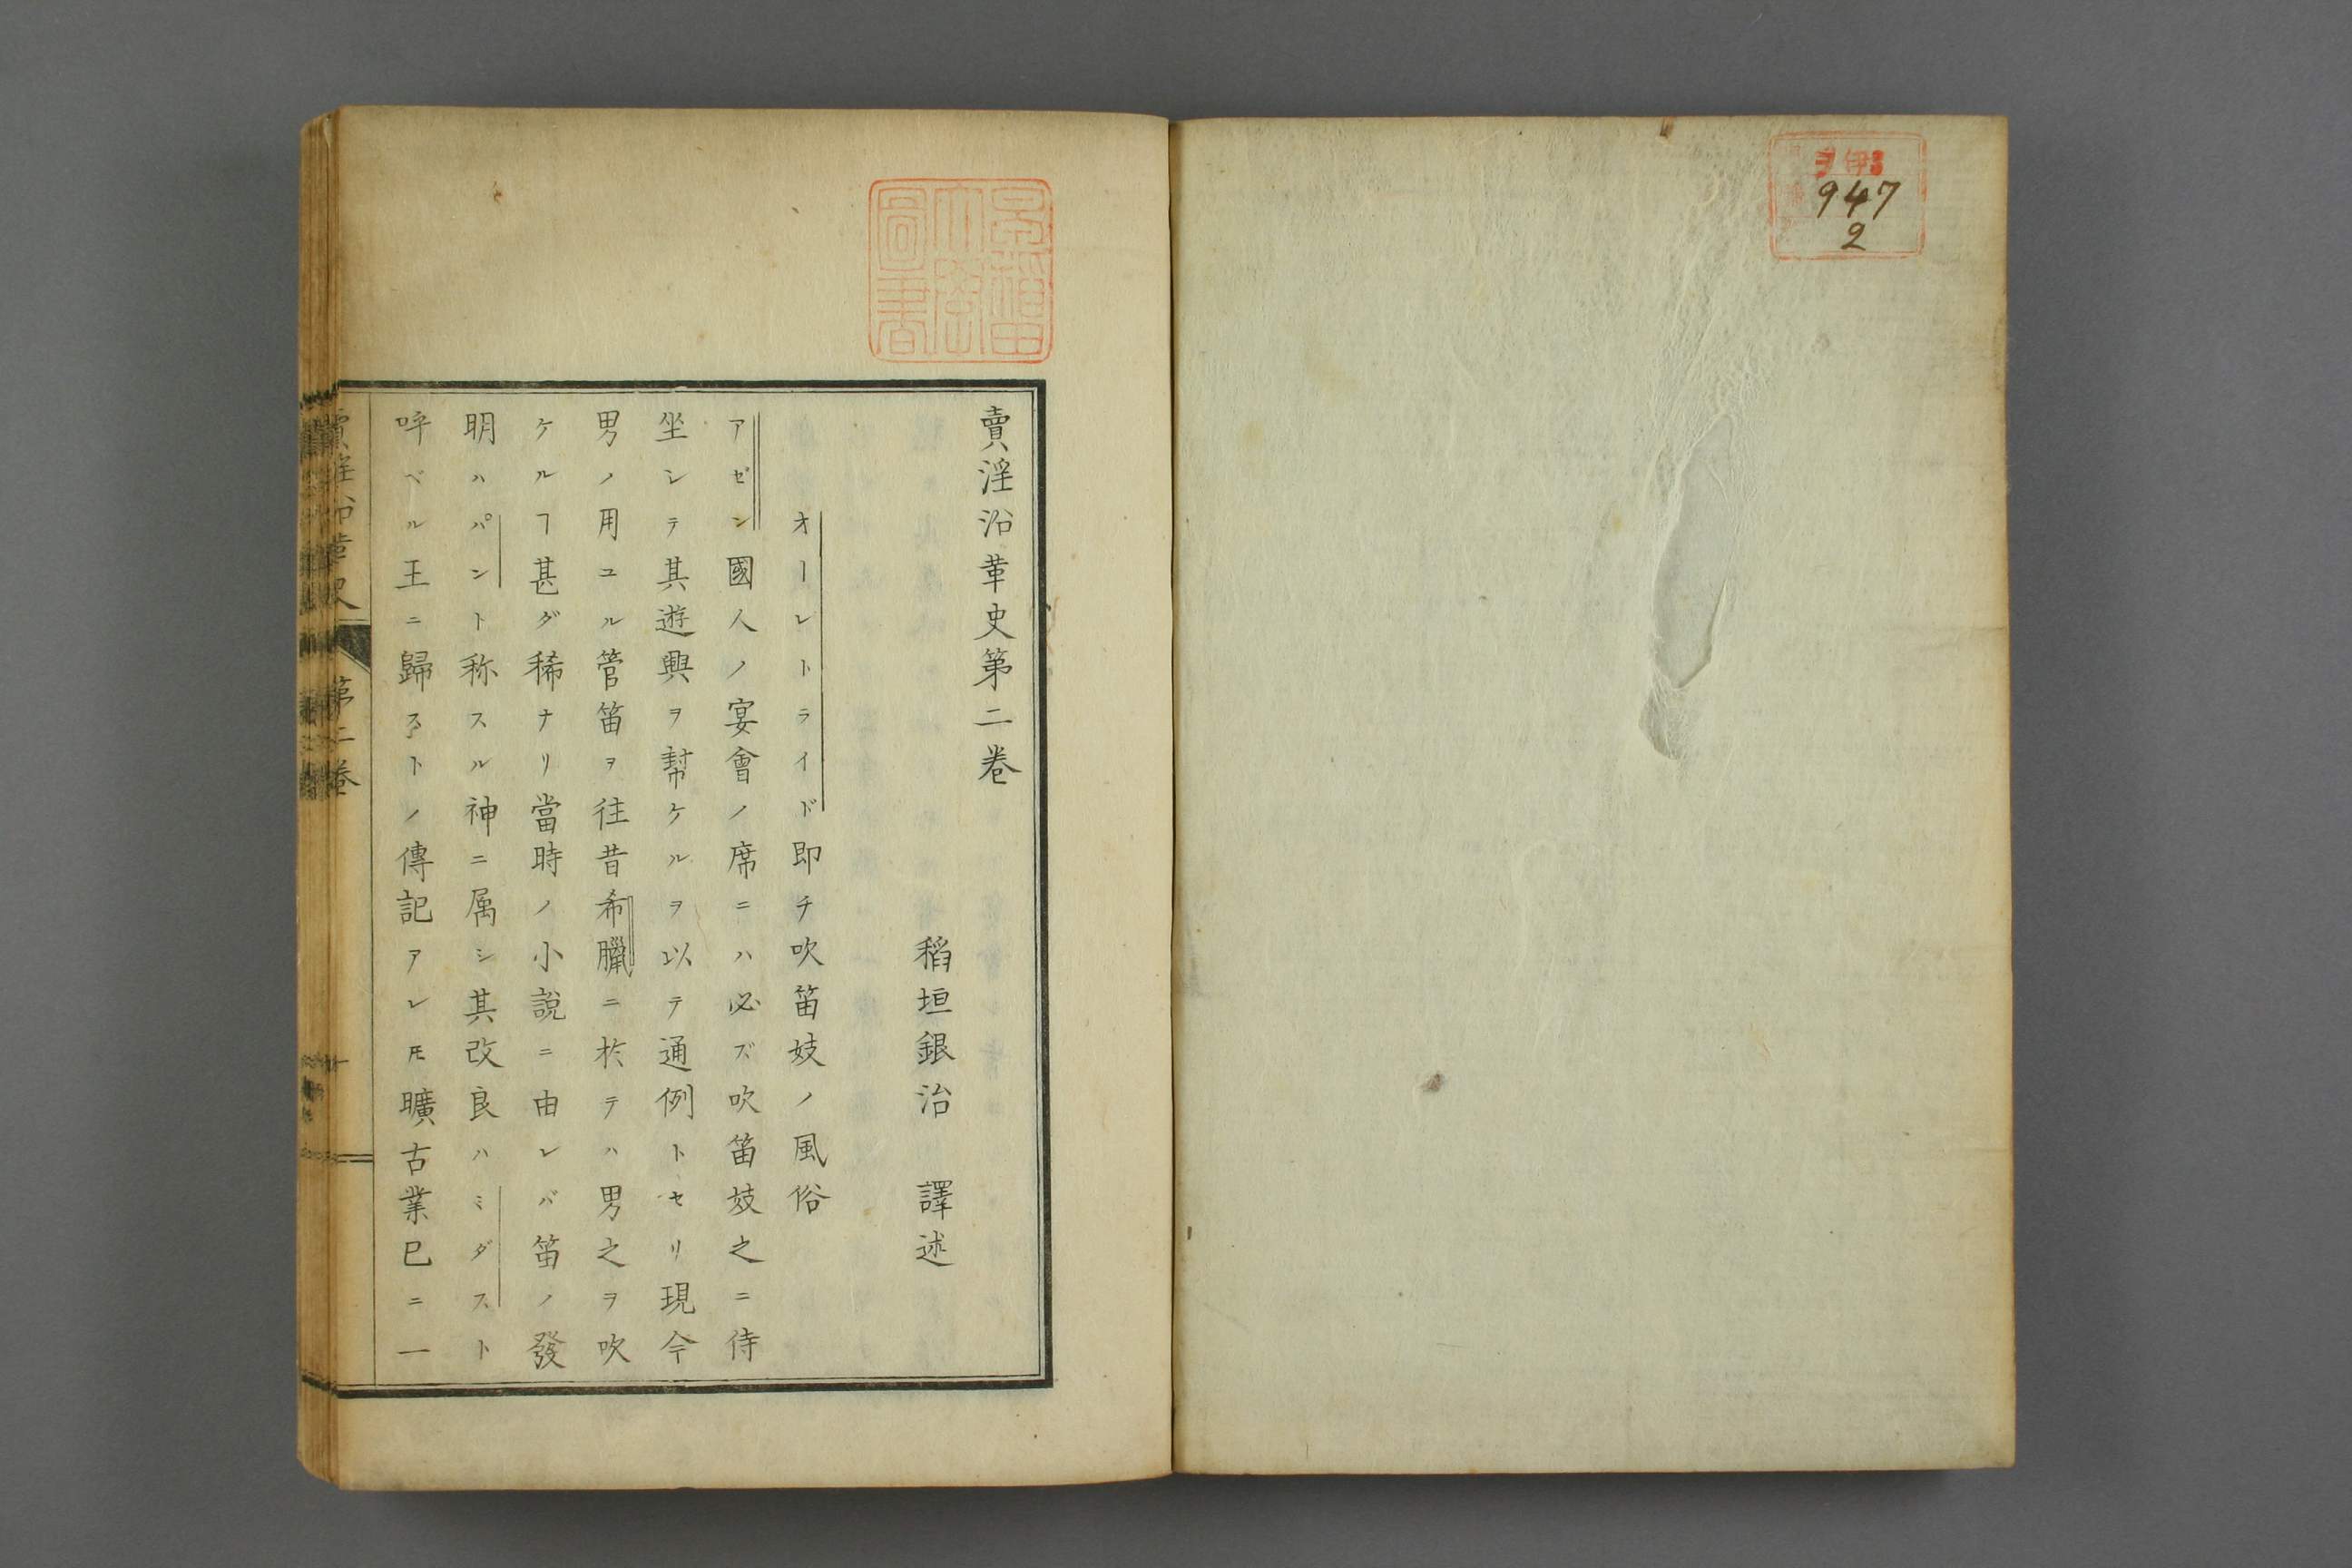 947
2
賣淫沿革史第二巻
稻垣銀治 譯述
オーレトライド即チ吹笛妓ノ風俗
アゼン國人ノ宴會ノ席ニハ必ズ吹笛妓之ニ侍
坐シテ其遊興ヲ幇ケルヲ以テ通例トセリ現今
男ノ用ユル管笛ヲ往昔希臘ニ於テハ男之ヲ吹
ケルヿ甚ダ稀ナリ當時ノ小說ニ由レバ笛ノ發
明ハパント称スル神ニ属シ其改良ハミダスト
呼ベル王ニ歸ストノ傳記アレ𪜈曠古業巳ニ一
賣淫沿革史 第二巻
早稲田大學圖書